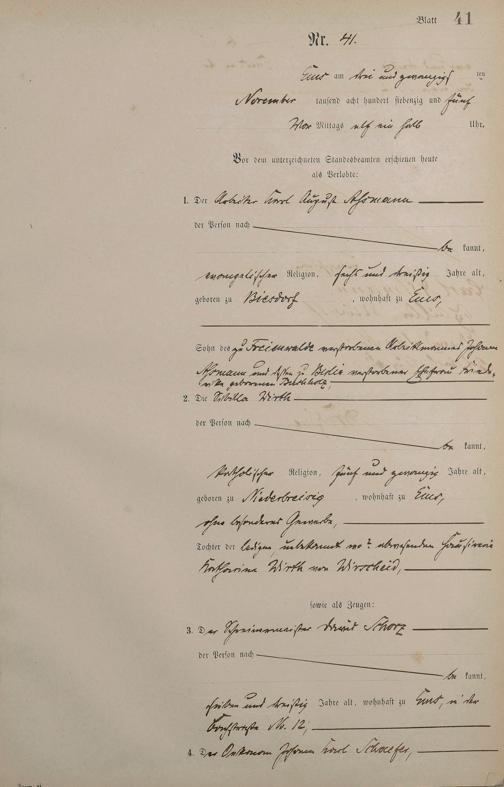 Blatt 41
Nr. 41.
Ems am drei und zwanzigsten
November tausend acht hundert siebenzig und fünf
Vor Mittags elf ein halb Uhr.
Vor dem unterzeichneten Standesbeamten erschienen heute
als Verlobte:
1. Der Arbeiter Karl August Assmann
der Person nach
be kannt,
evangelischer Religion, sechs und dreißig Jahre alt,
geboren zu Biesdorf, wohnhaft zu Ems,
Sohn des zu Freienwalde verstorbenen Arbeitmannes Johann
Assmann und dessen zu Berlin verstorbener Ehefrau Friede-
rike geborenen Buchholz,
2. Die Sibilla Wirth
der Person nach
be kannt,
katholischer Religion, fünf und zwanzig Jahre alt,
geboren zu Niederbreisig, wohnhaft zu Ems,
ohne besonderes Gewerbe,
Tochter der ledigen, unbekannt wo? abwesenden
Katharina Wirth von Wirscheid,
sowie als Zeugen:
3. Der Schreinermeister David Schorz
der Person nach
be kannt,
sieben und dreißig Jahre alt, wohnhaft zu Ems, in der
No. 12,
4. Der Oekonom Johann Karl Schaefer,